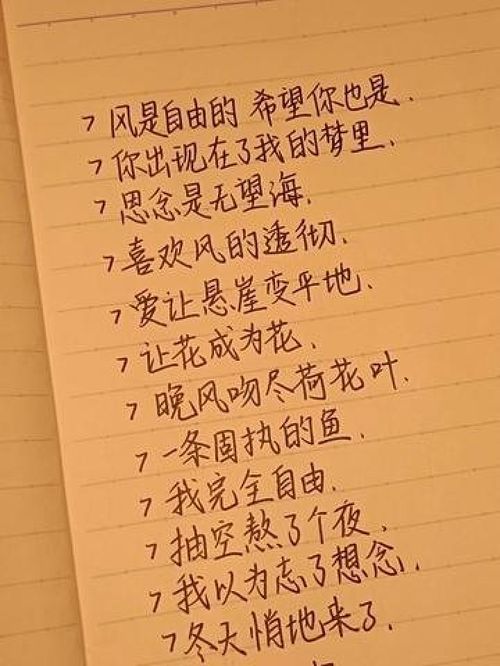 7 风是自由的 希望你也是.
7 你出现在了我的梦里.
7 思念是无望海.
7 喜欢风的透彻.
7 爱让悬崖变平地.
7 让花成为花.
7 晚风吻尽荷花叶.
7 一条固执的鱼.
7 我完全自由.
7 抽空熬了个夜.
7 我以为忘了想念.
7 冬天悄地来了.